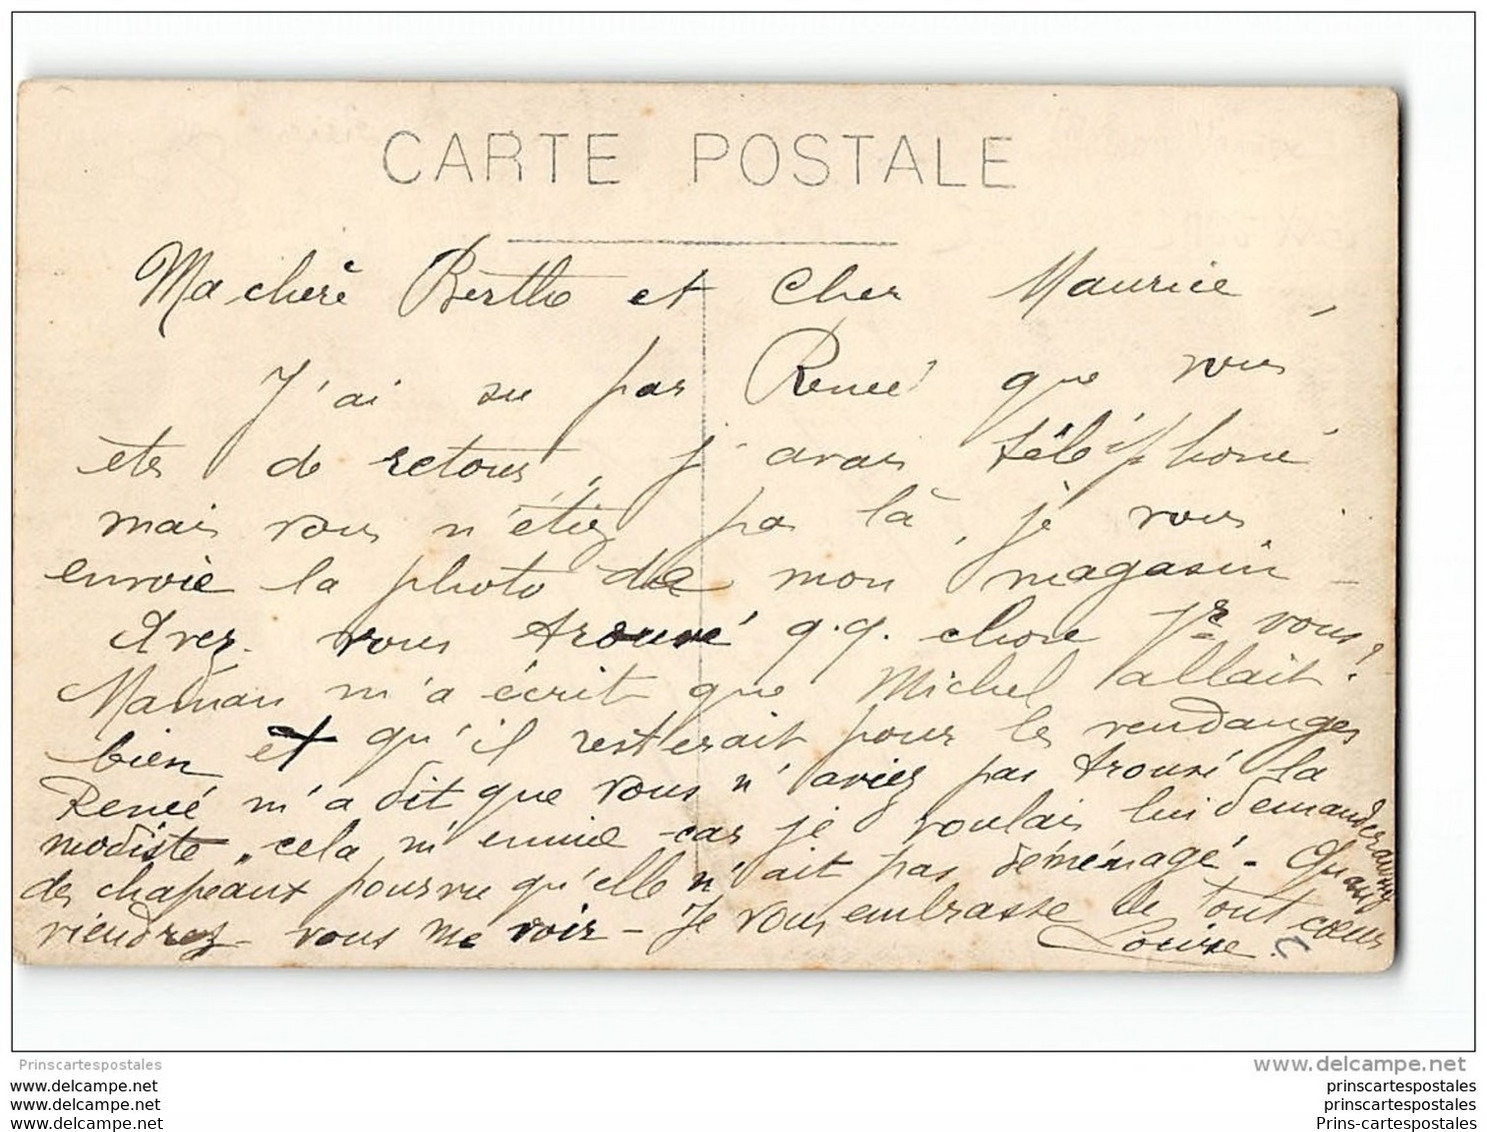 CARTE POSTALE
Ma chère Berthe et Cher Maurice,
J'ai su par Renée que vous
etes de retour, j'avais téléphoné
mais vous n'étiez pas là, je vous
envoie la photo de mon magasin -
Avez vous trouvé q.q. chose pr vous?
Maman m'a écrit que Michel allait
bien et qu'il resterait pour les vendanges
Renée m'a dit que vous n'aviez pas trouvé la
modiste, cela m'ennuie car je voulais lui demander
des chapeaux pourvu qu'elle n'ait pas déménagé - Quand
viendrez - vous me voir - Je vous embrasse de tout cœur
Louise.
Prinscartespostales
www.delcampe.net
www.delcampe.net
www.delcampe.net
www.delcampe.net
prinscartespostales
prins-cartespostales
Prins-cartespostales